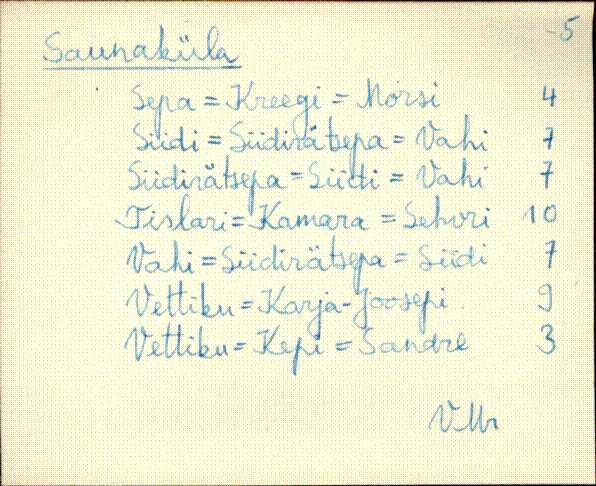 -5
Saunaküla
Sepa = Kreegi = Mõrsi 4
Siidi = Siidirätsepa = Vahi 7
Siidirätsepa = Siidi = Vahi 7
Tislari = Kamara = Sehvri 10
Vahi = Siidirätsepa = Siidi 7
Vettiku = Karja-Joosepi 9
Vettiku = Kepi = Sandre 3